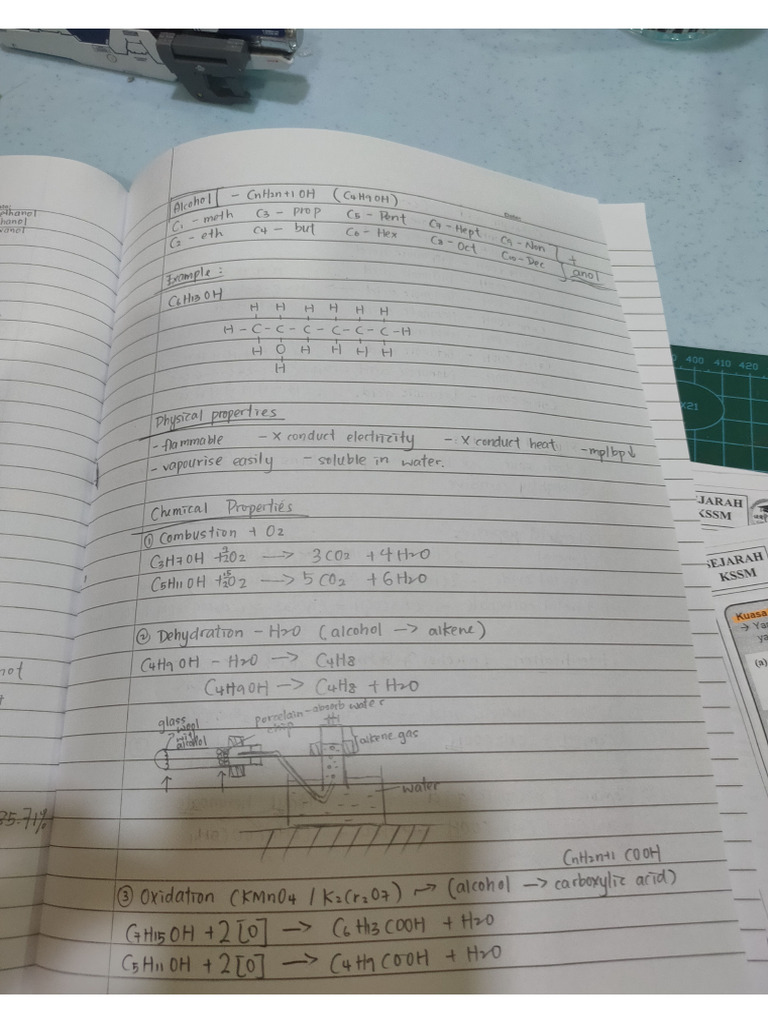 Alcohol - CnH2n+1OH (C4H9OH)
C1 - meth C3 - prop C5 - Pent C7 - Hept C9 - Non
C2 - eth C4 - but C6 - Hex C8 - Oct C10 - Dec
+ anol
Example :
C6H13OH
H H H H H H
H - C - C - C - C - C - C - H
H O H H H H
H
Physical properties
- flammable - x conduct electricity - x conduct heat - mp/bp↓
- vapourise easily - soluble in water.
Chemical Properties
① Combustion + O2
C3H7OH + 9/2 O2 → 3CO2 + 4H2O
C5H11OH + 15/2 O2 → 5CO2 + 6H2O
② Dehydration - H2O (alcohol → alkene)
C4H9OH - H2O → C4H8
C4H9OH → C4H8 + H2O
glass wool with alcohol
porcelain chip - absorb water
alkene gas
water
CnH2n+1 COOH
③ Oxidation (KMnO4 / K2Cr2O7) → (alcohol → carboxylic acid)
C7H15OH + 2[O] → C6H13COOH + H2O
C5H11OH + 2[O] → C4H9COOH + H2O
35.71%
400 410 420
X21
JARAH
KSSM
SEJARAH
KSSM
Kuasa
→ Ya
ya
(a)